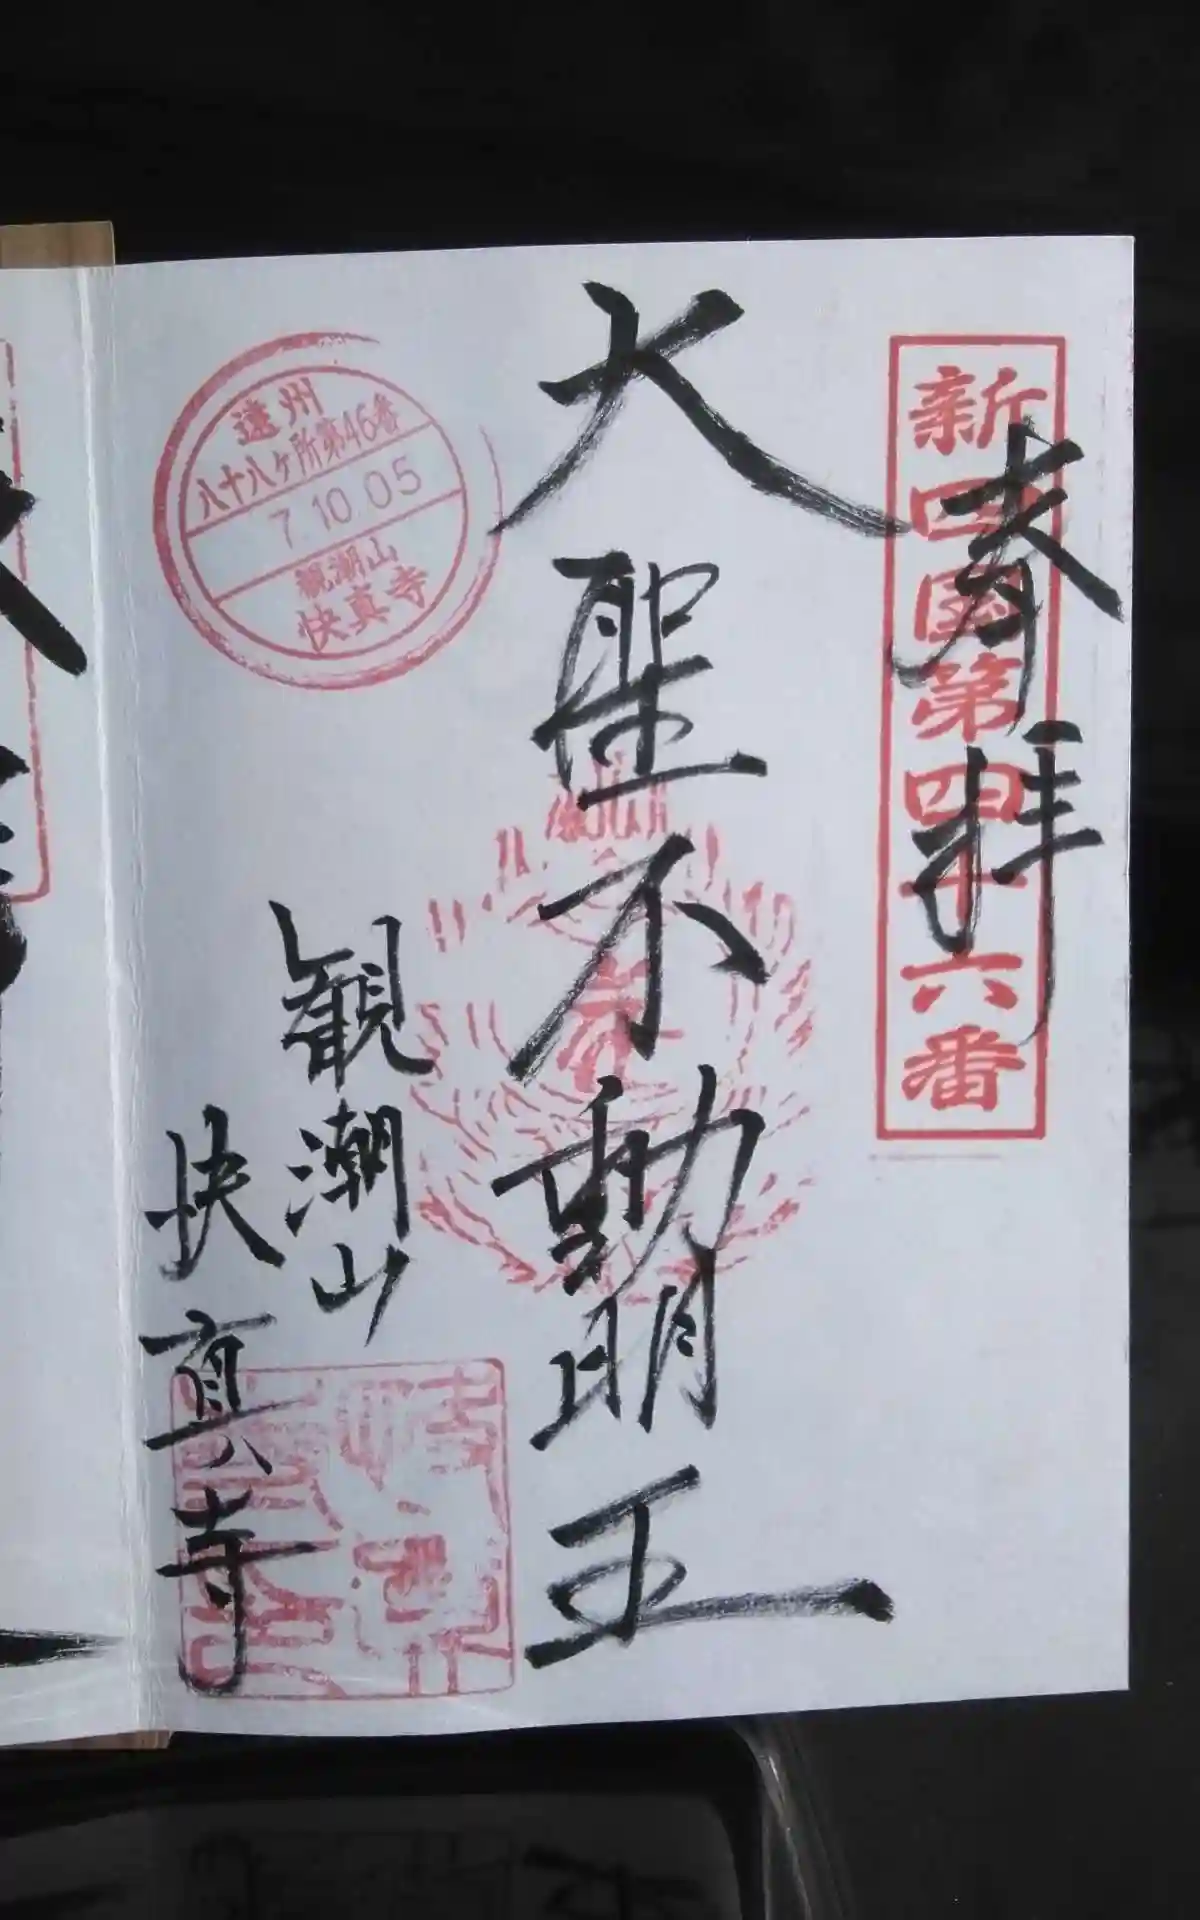 奉拝
新四国第四十六番
大聖不動明王
観潮山
快真寺
遠州
八十八ヶ所第46番
7.10.05
観潮山
快真寺